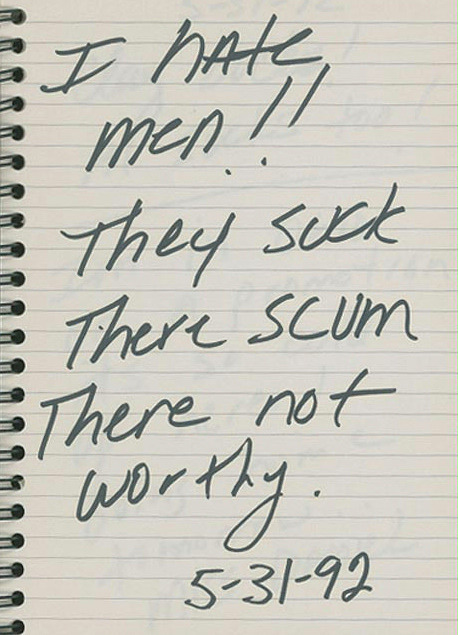 I hate
men!!
They suck
There scum
There not
worthy.
5-31-92